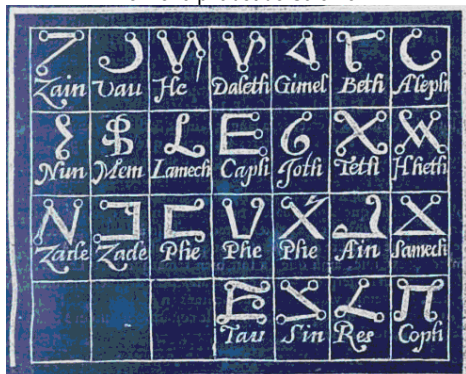 Zain Vau He Daleth Gimel Beth Aleph
Nun Mem Lamech Caph Joth Teth Hheth
Zade Zade Phe Phe Phe Ain Samech
Tau Sin Res Coph